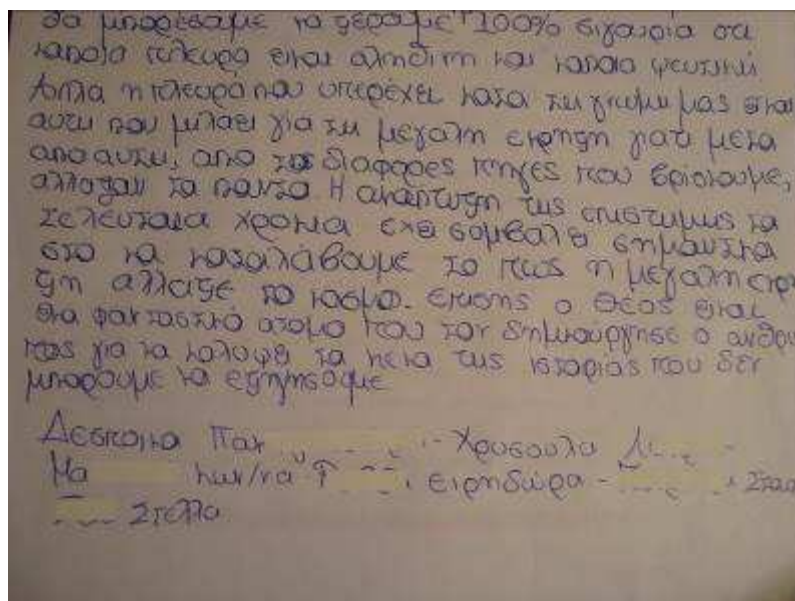 θα μπορέσαμε να ξέραμε 100% σιγουρία οτι
καποια πλευρα ειναι αληθινη και καποια ψευτικη
Αλλα η πλευρα που υπερέχει κατα τη γνωμη μας ειναι
αυτη που μιλαει για τη μεγαλη εκρηξη γιατι μετα
απο αυτη, απο τις διαφορες πηγες που βρισκουμε,
αλλαξαν τα παντα. Η αναπτυξη της επιστημης τα
τελευταια χρονια εχει συμβαλει σημαντικα
στο να καταλάβουμε το πως η μεγαλη εκρη
ξη αλλαξε το κοσμο. επισης ο Θεος ειναι
ενα φανταστικο ατομο που τον δημιουργησε ο ανθρω
πος για να καλυψει τα κενα της ιστοριας που δεν
μπορουμε να εξηγησουμε
Δεσποινα Παν Χρυσουλα
Μα Ειρηδωρα
Στελλα